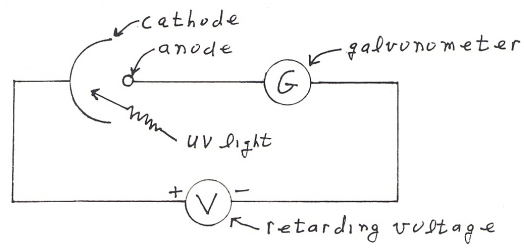 cathode
anode
galvonometer
G
uv light
+ V -
retarding voltage